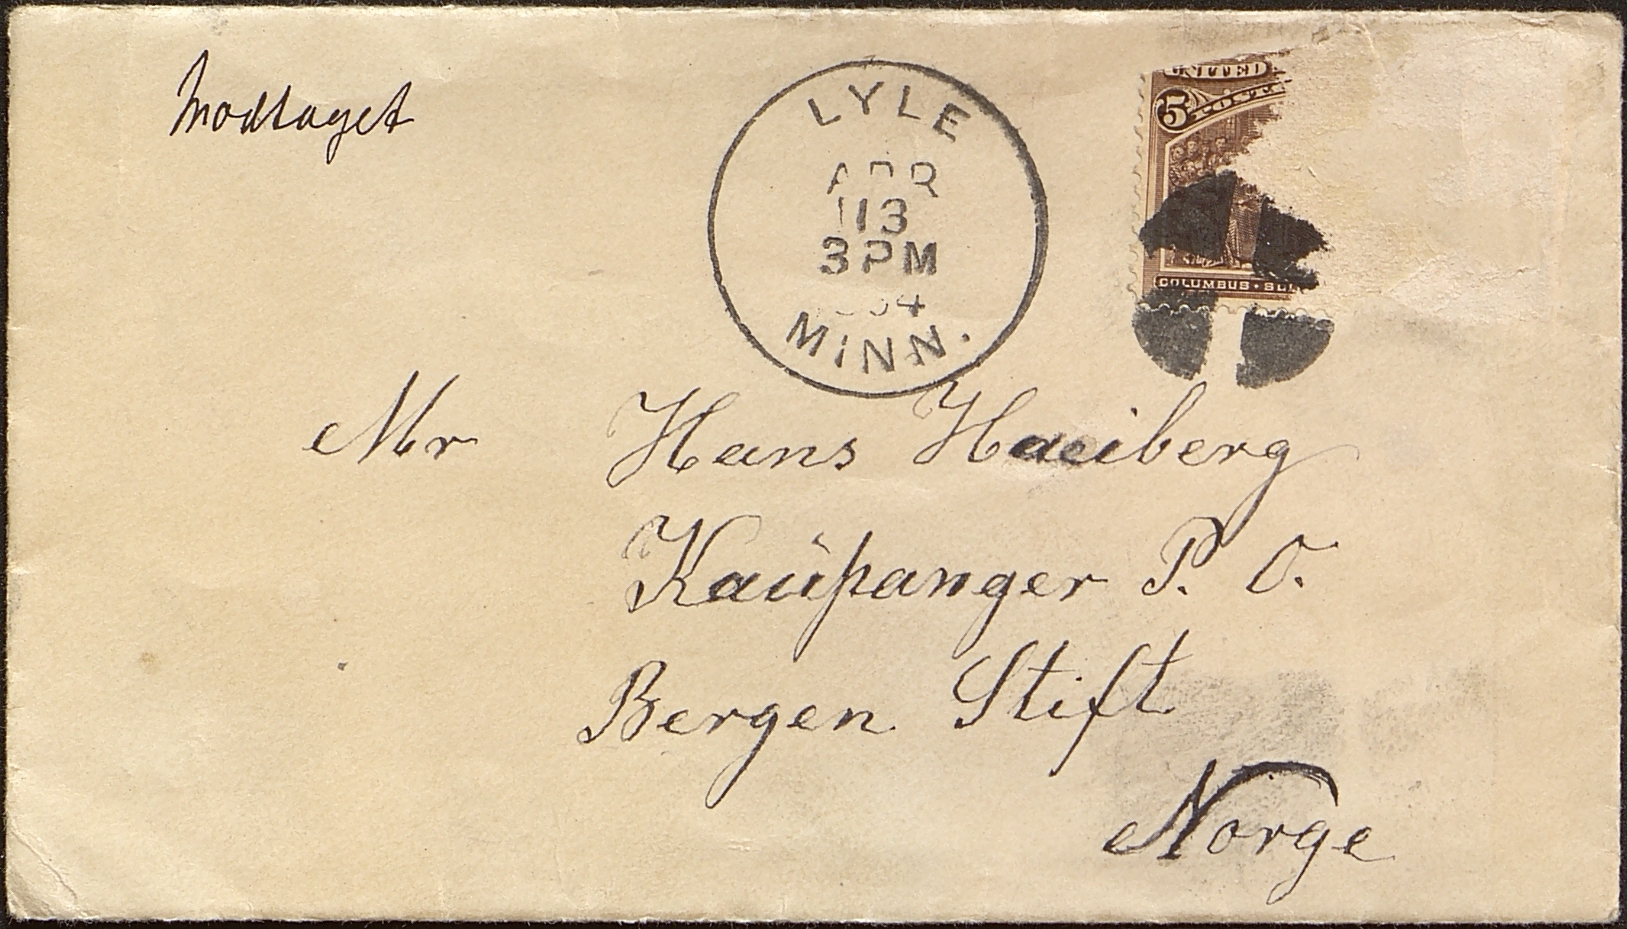 Modtaget
LYLE
APR
13
3 PM
MINN.
UNITED
5
COLUMBUS
Mr Hans Haeiberg
Kaupanger P. O.
Bergen Stift
Norge